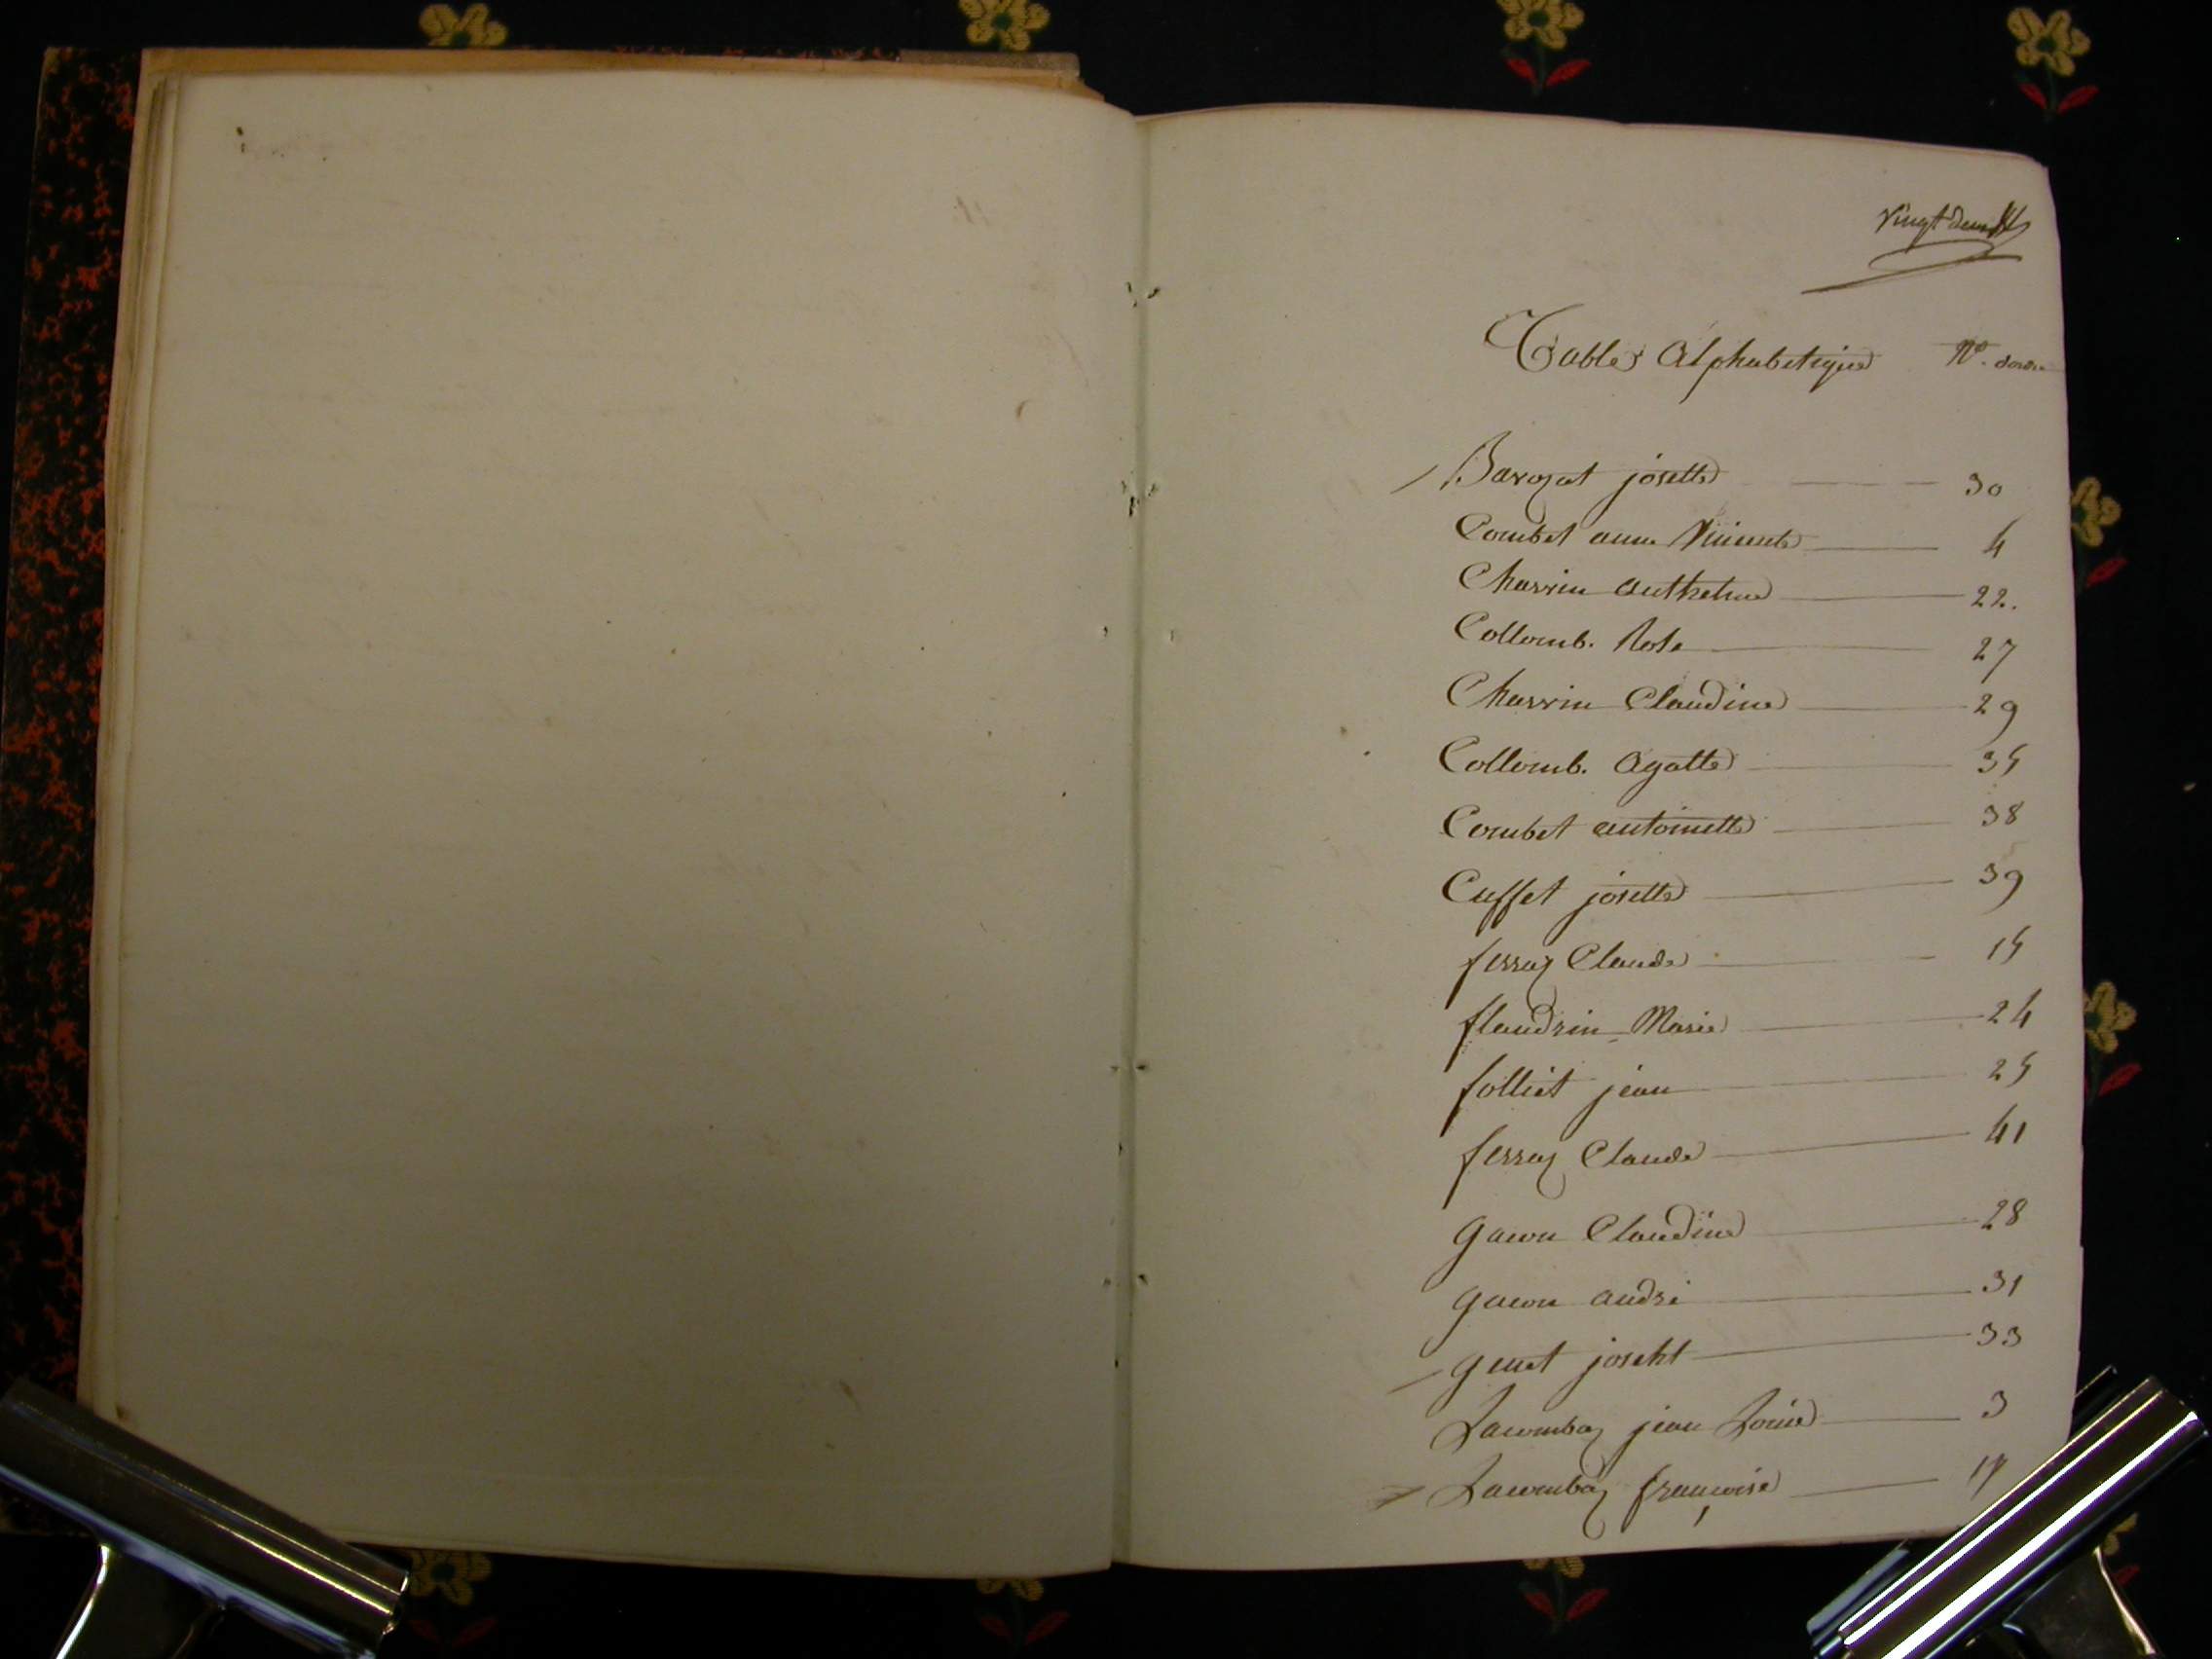 vingt deux
Table Alphabetique N.o dordre
Barozat josette 30
Combet anne Vincente 4
Charrin Anthelme 22.
Collomb. Rose 27
Charrin Claudine 29
Collomb. Agatte 35
Combet antoinette 38
Cuffet josette 39
ferroz Claude 15
flandrin Marie 24
folliet jean 25
ferroz Claude 41
gacon Claudine 28
gacon andré 31
genet josepht 33
Lacombaz jean Louis 3
Lacombaz françoise